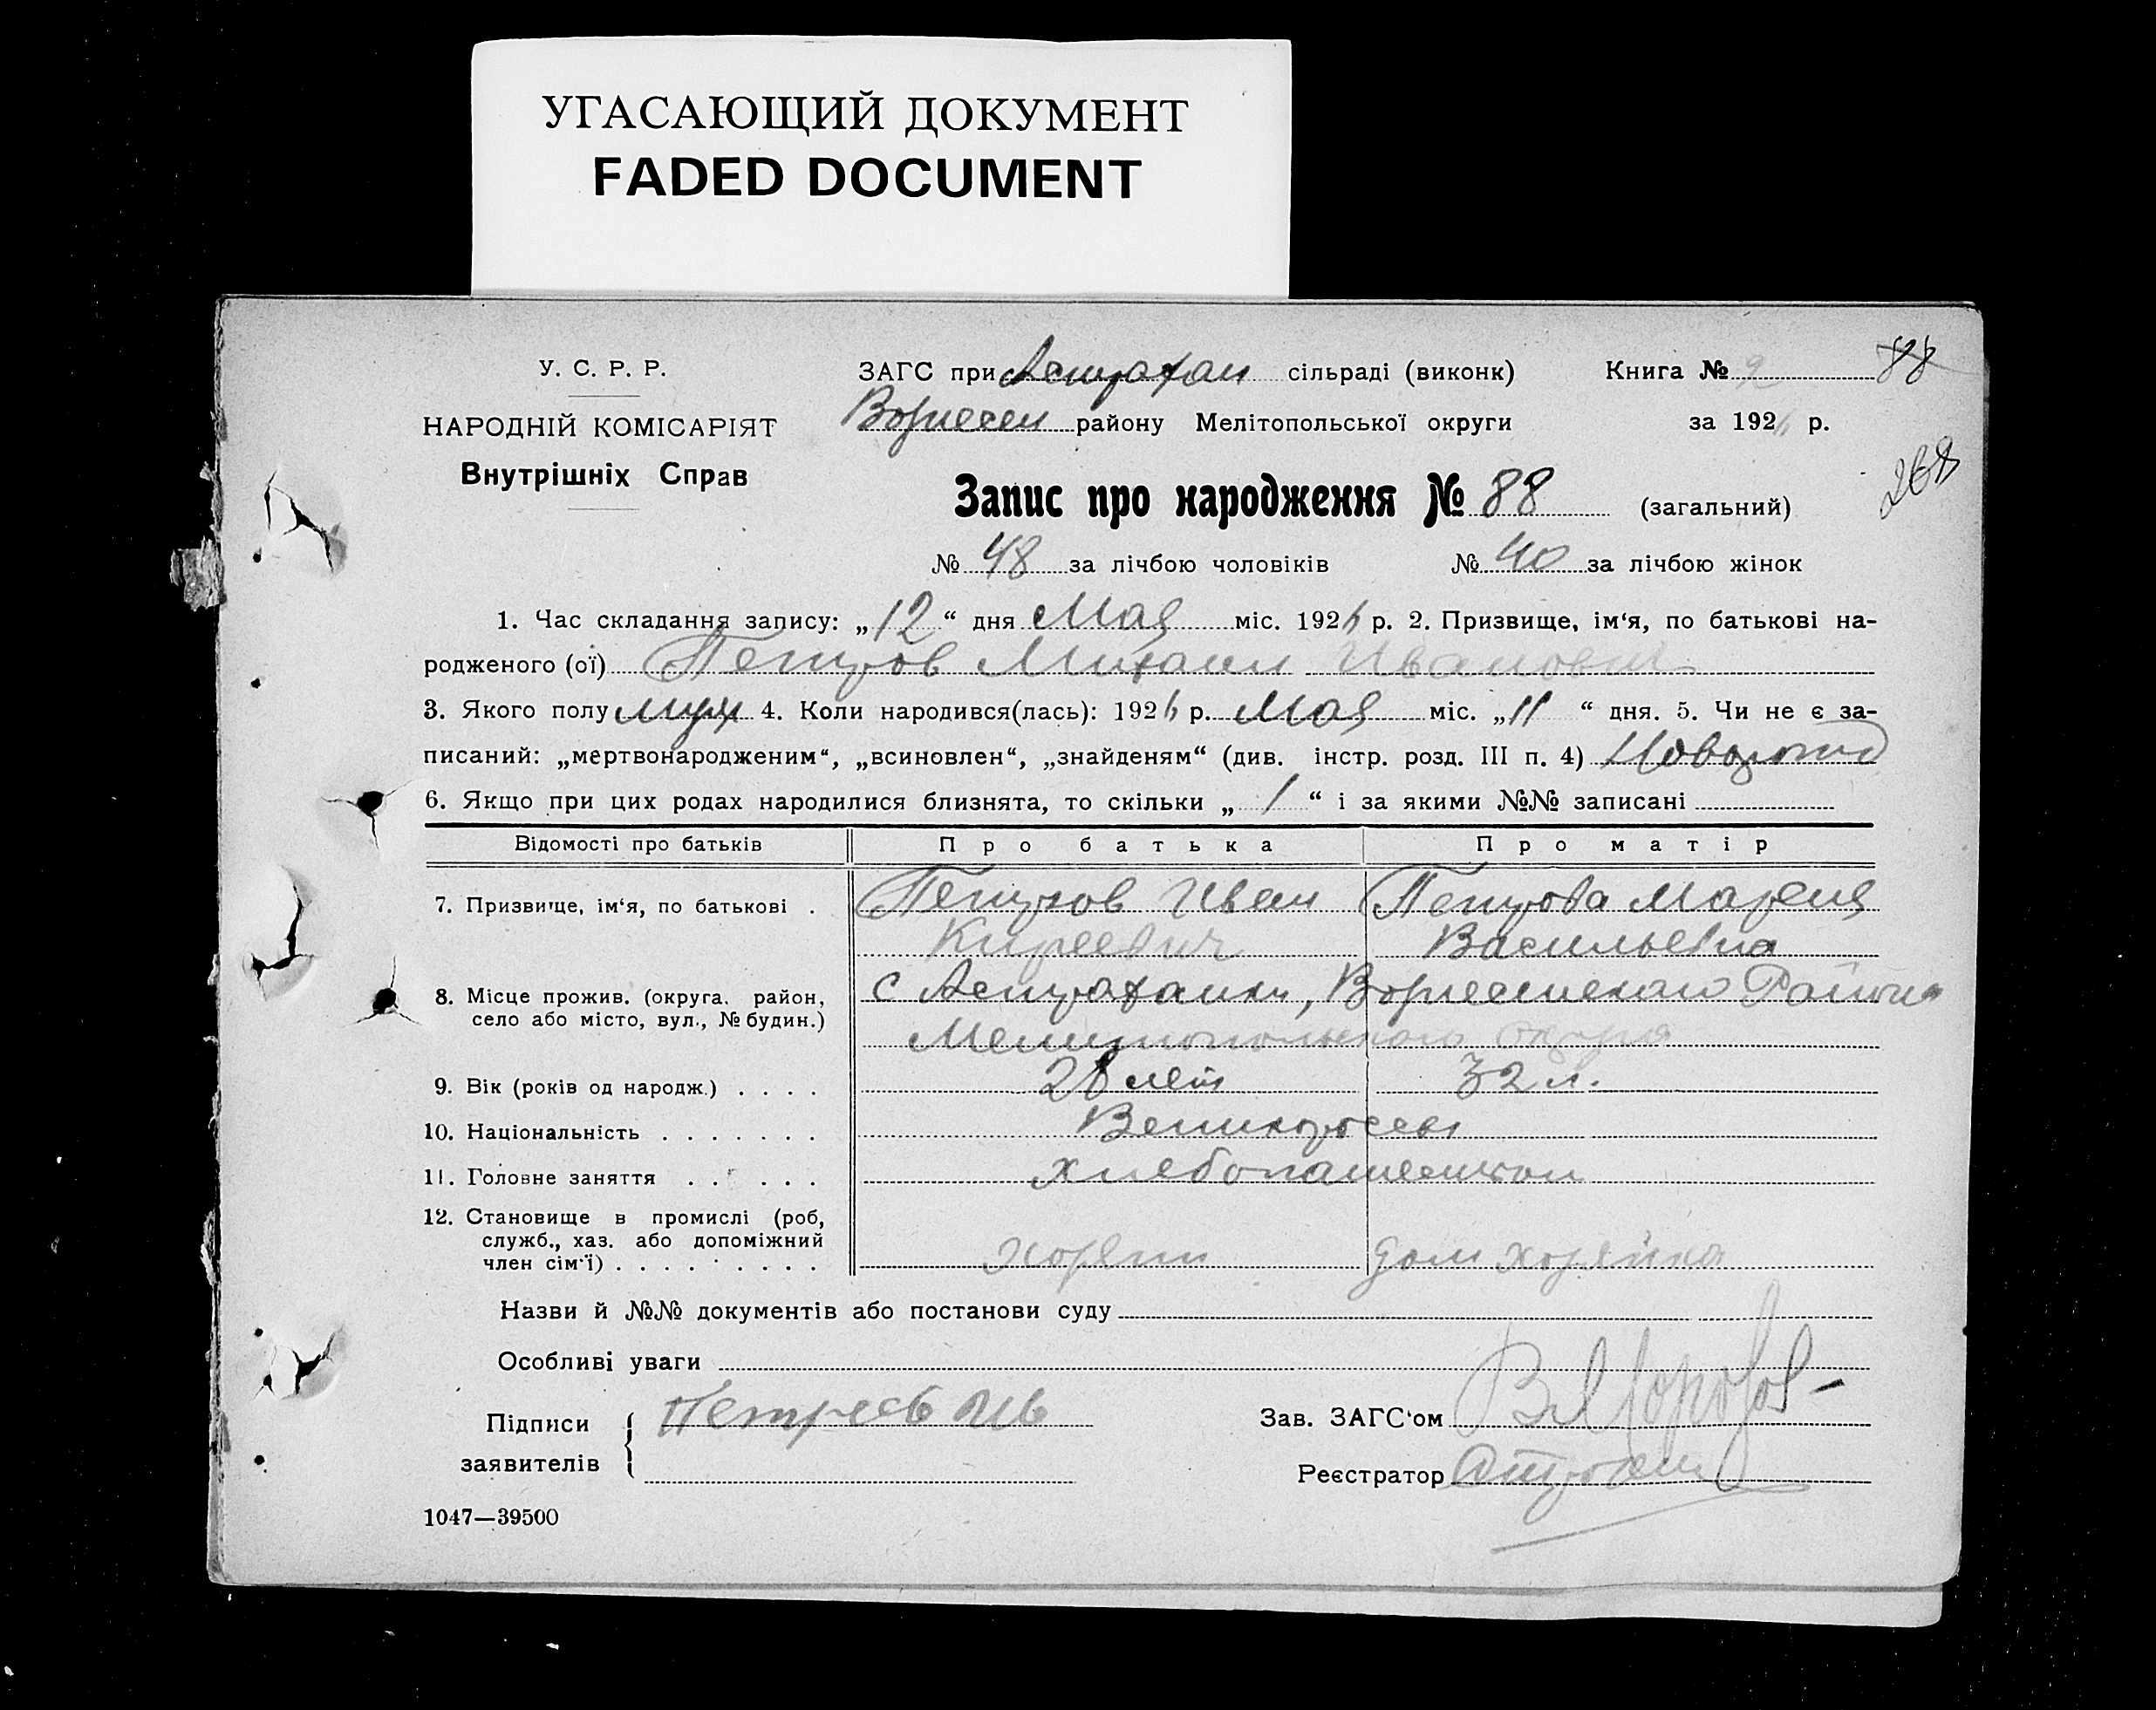 УГАСАЮЩИЙ ДОКУМЕНТ
FADED DOCUMENT
У. С. Р. Р.
НАРОДНІЙ КОМІСАРІЯТ
Внутрішніх Справ
ЗАГС при Астрахан сільраді (виконк)
Книга № 2 88
Вознесен району Мелітопольської округи
за 1926 р.
268
Запис про народження № 88 (загальний)
№ 48 за лічбою чоловіків № 40 за лічбою жінок
1. Час складання запису: „12“ дня Мая міс. 1926 р. 2. Призвище, ім‘я, по батькові на-
родженого (ої) Петров Михаил Иванович
3. Якого полу муж 4. Коли народився(лась): 1926 р. Мая міс. „11“ дня. 5. Чи не є за-
писаний: „мертвонародженим“, „всиновлен“, „знайденям“ (див. інстр. розд. III п. 4)
6. Якщо при цих родах народилися близнята, то скільки „1“ і за якими №№ записані
Відомості про батьків Про батька Про матір
7. Призвище, ім‘я, по батькові . Петров Иван Петрова Мария
Киреевич Васильевна
8. Місце прожив. (округа, район, село або місто, вул., № будин.) с Астраханки, Вознесенскаго Района
Мелитопольскаго округа
9. Вік (років од народж.) . . . . 28 лет 32 л.
10. Національність . . . . . . . Великороссы
11. Головне заняття . . . . . . хлебопашеством
12. Становище в промислі (роб,
служб., хаз. або допоміжний
член сім‘ї) . . . . . . . . . хозяин дом хозяйка
Назви й №№ документів або постанови суду
Особливі уваги
Підписи
заявителів
Петров Ив
Зав. ЗАГС‘ом
Реєстратор
1047—39500